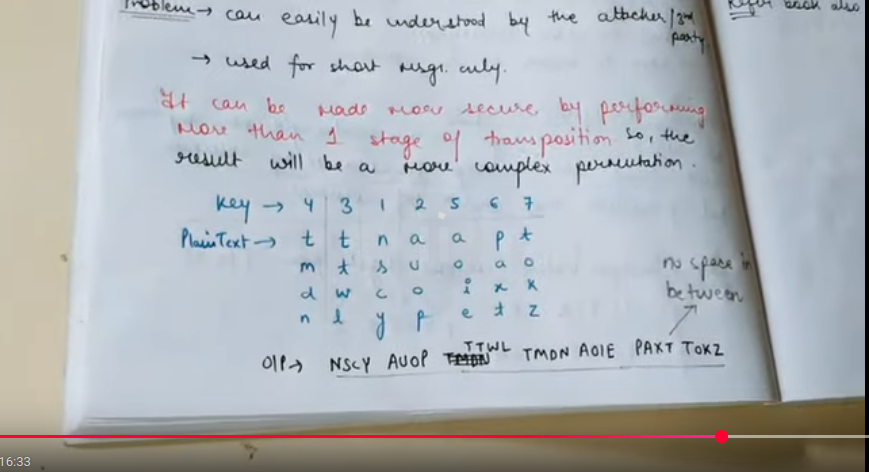 Problem → can easily be understood by the attacker/3rd party
Refer book also
→ used for short msgs. only.
It can be made more secure by performing
more than 1 stage of transposition so, the
result will be a more complex permutation.
Key → 4 3 1 2 5 6 7
PlainText → t t n a a p t
m t s u o a o
d w c o i x k
n l y p e t z
no space in
between
O/P → NSCY AUOP TTWL TMDN AOIE PAXT TOKZ
16:33